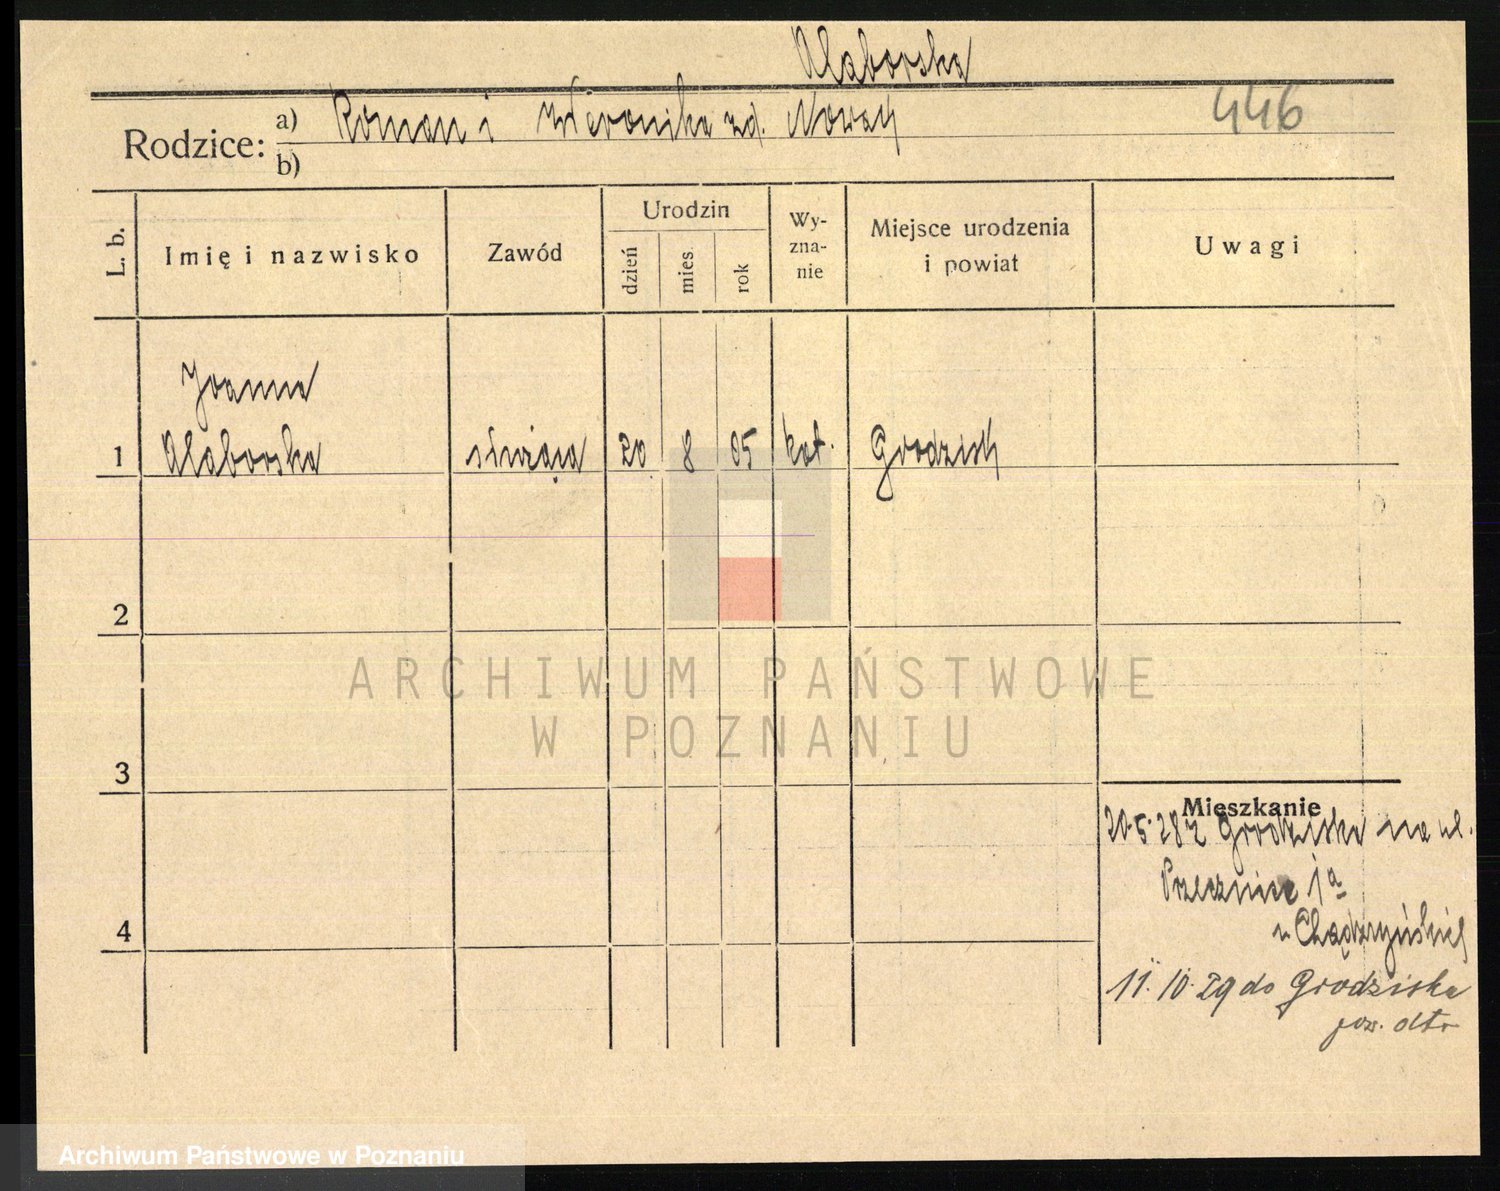 Alaborska
446
Rodzice: a) Roman i Weronika zd. Nowak
b)
L. b.
Imię i nazwisko
Zawód
Urodzin
dzień
mies.
rok
Wy-
zna-
nie
Miejsce urodzenia
i powiat
Uwagi
Joanna
1 Alaborska służąca 20 8 05 kat. Grodzisk
2
ARCHIWUM PAŃSTWOWE
W POZNANIU
3
Mieszkanie
20.5.28 z Grodziska na ul.
Przecznice 1a
u Chądzyńskiej
4
11.10.29 do Grodziska
pow. dtr
Archiwum Państwowe w Poznaniu